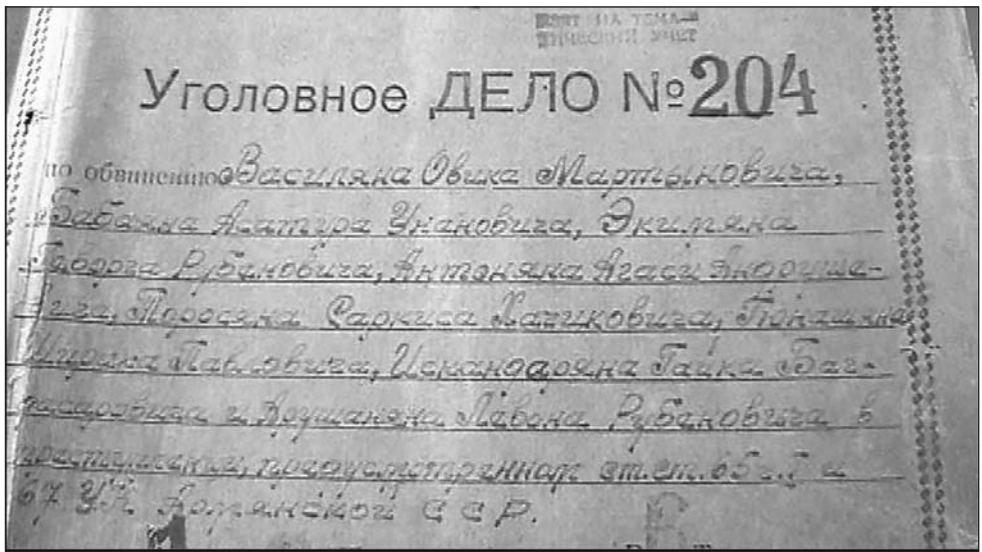 ВЗЯТ НА ТЕМА-
ТИЧЕСКИЙ УЧЕТ
Уголовное ДЕЛО №204
по обвинению Василяна Овика Мартыновича,
Бабаяна Асатура Унановича, Экимяна
Геворга Рубеновича, Антоняна Агаси Андруша-
вича, Торосяна Саркиса Хачиковича,
Павловича, Искандаряна Гайка Баг-
дасаровича и Арушаняна Левона Рубеновича в
преступлении, предусмотренном ст.ст. 65 и
67 УК Армянской ССР.